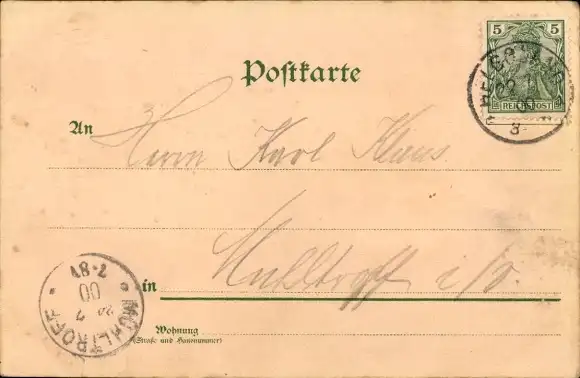 5 5
REICHSPOST
HELGOLAND
Postkarte
An Herrn Karl Klaus
in Mühltroff i/V.
Wohnung
(Straße und Hausnummer)
MÜHLTROFF
7-8V
00